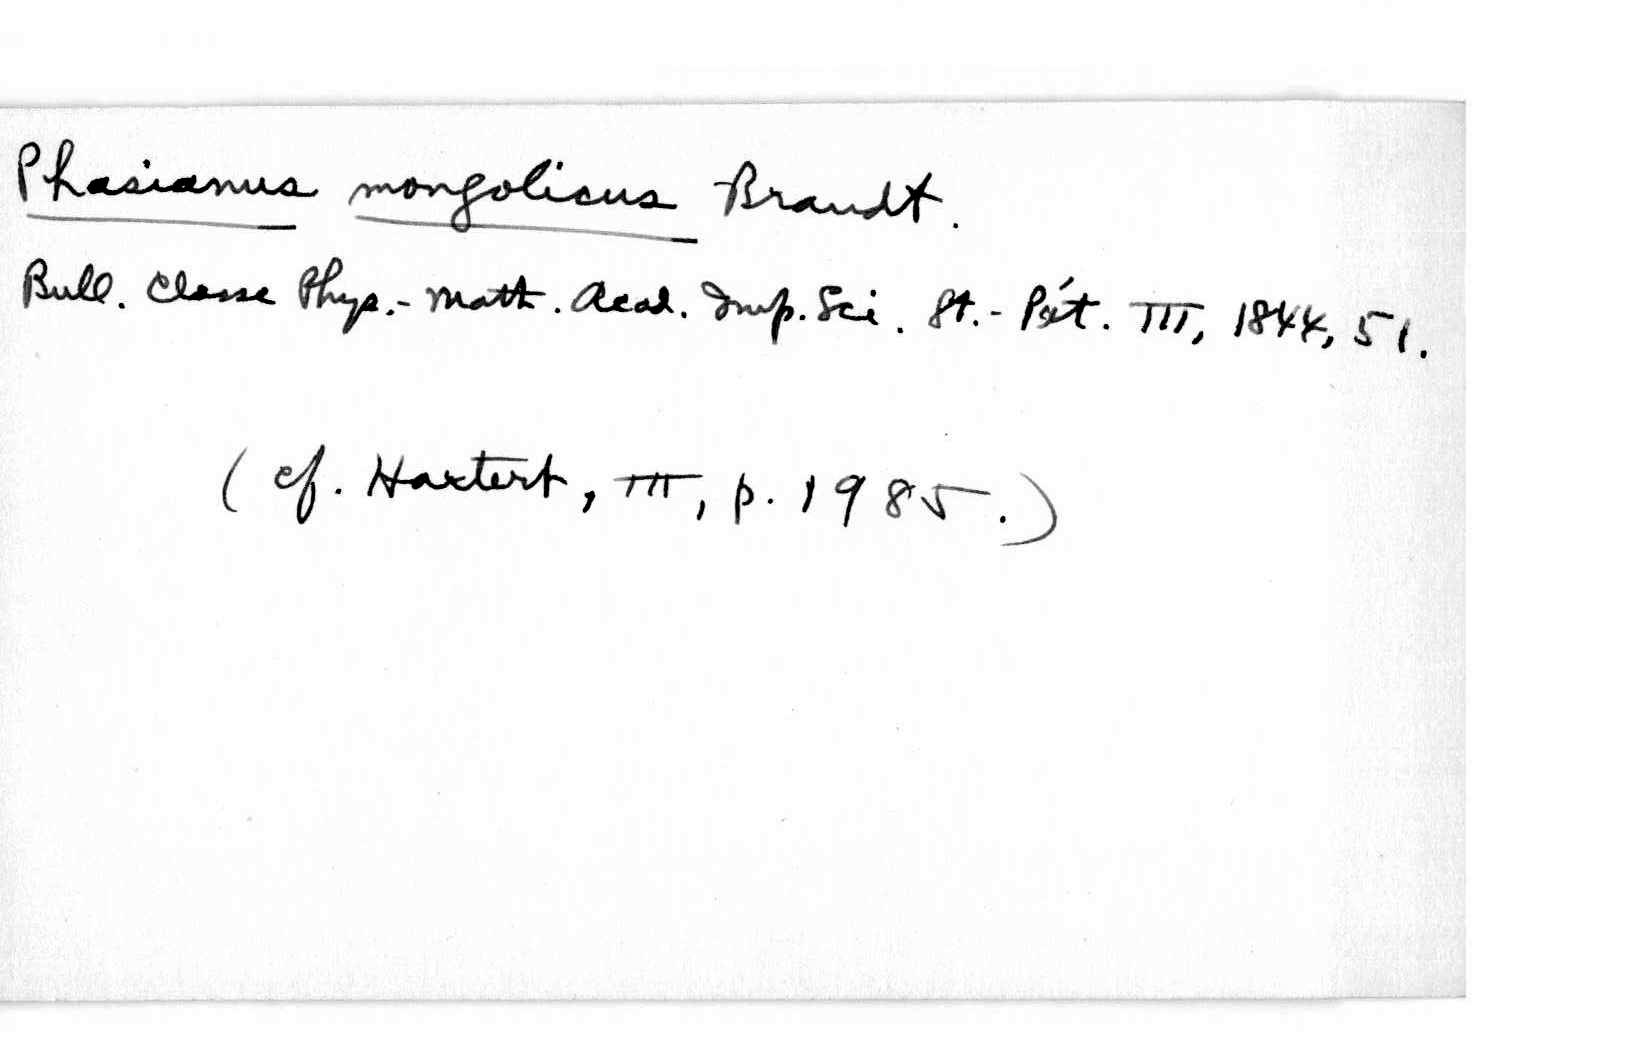 Phasianus mongolicus Brandt.
Bull. Classe Phys.-Math. Acad. Imp. Sci. St.-Pét. III, 1844, 51.
(cf. Hartert, III, p. 1985.)